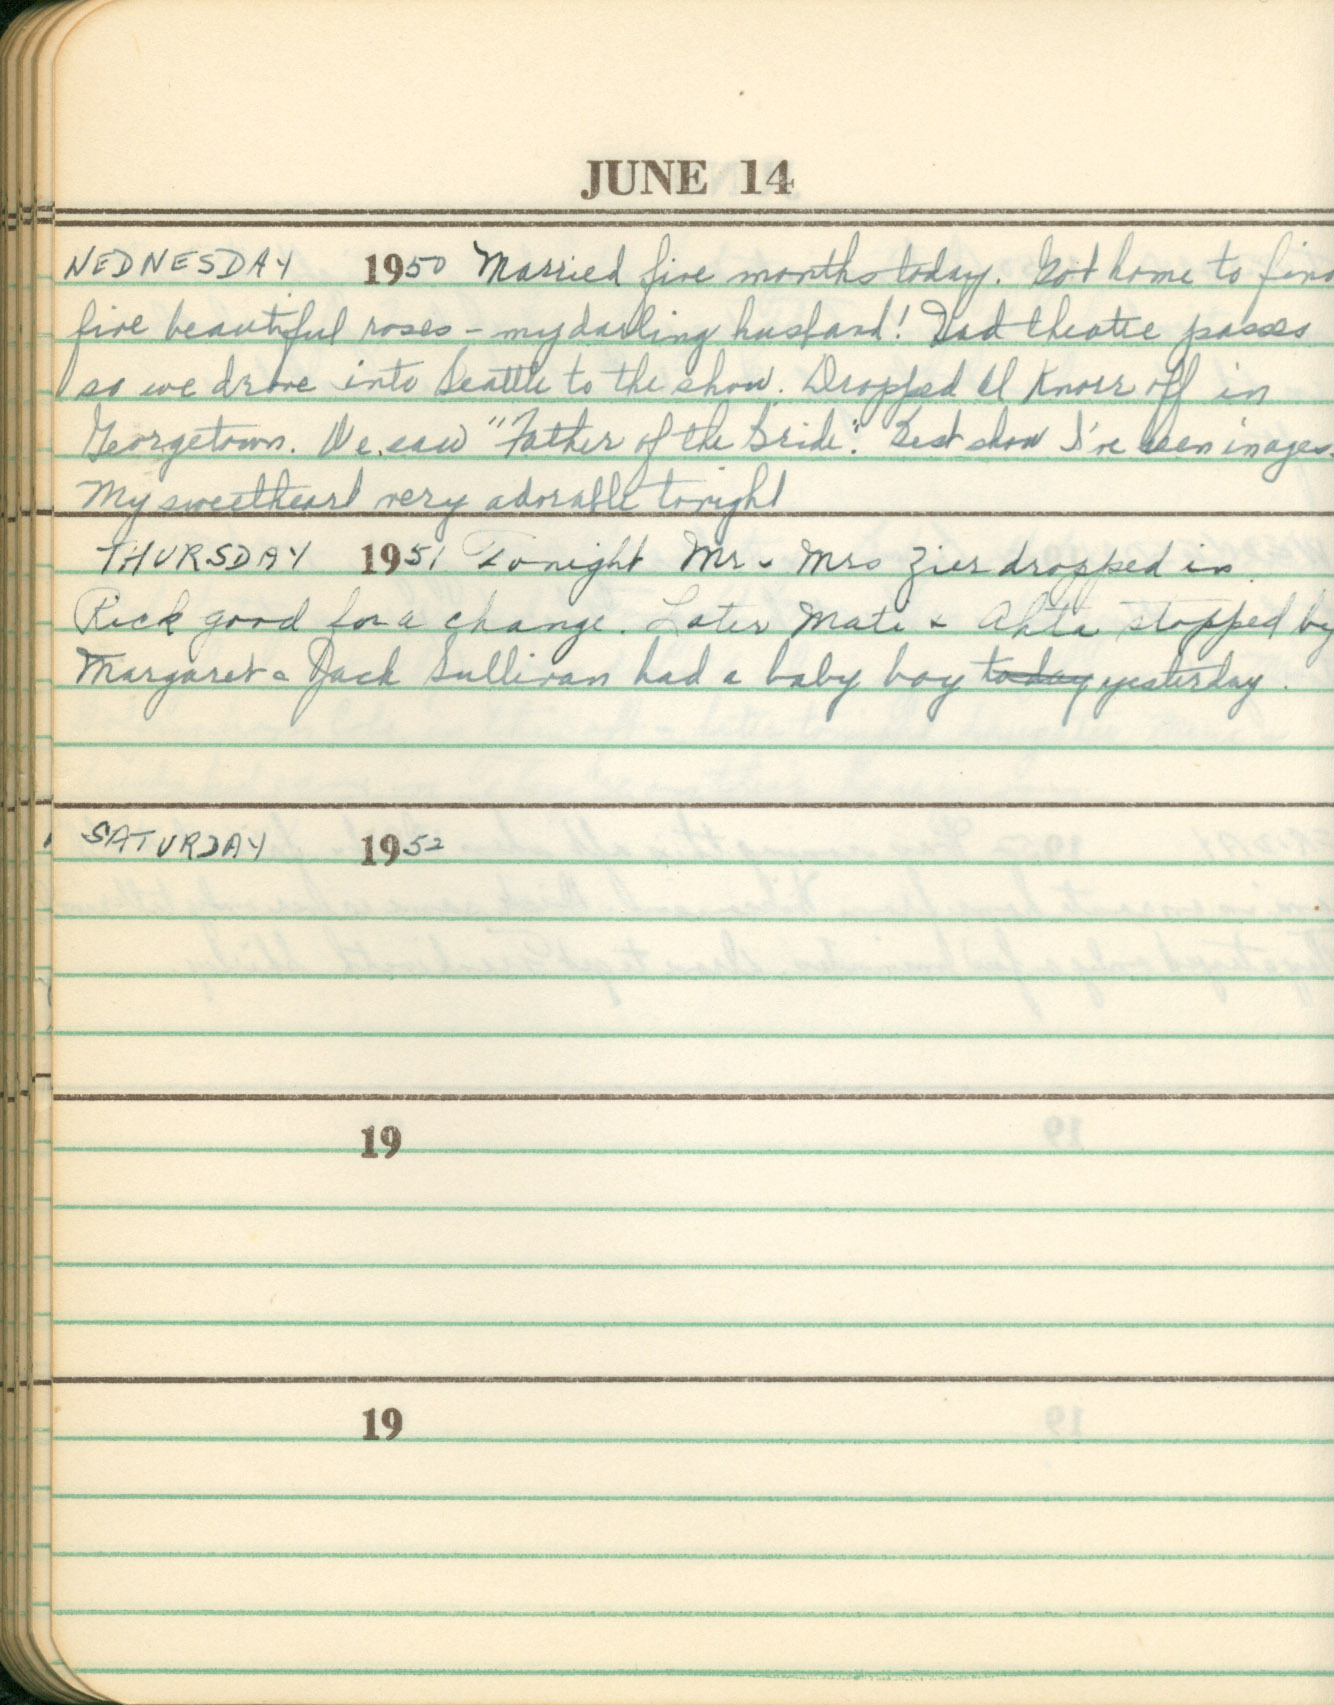 JUNE 14
WEDNESDAY 1950 Married five months today. Got home to find
five beautiful roses - my darling husband! Had theatre passes
so we drove into Seattle to the show. Dropped Al Knorr off in
Georgetown. We saw "Father of the Bride". Best show I've seen in ages.
My sweetheart very adorable tonight
THURSDAY 1951 Tonight Mr & Mrs Zier dropped in
Rick good for a change. Later Mate & Ahta stopped by
Margaret & Jack Sullivan had a baby boy today yesterday.
SATURDAY 1952
19
19